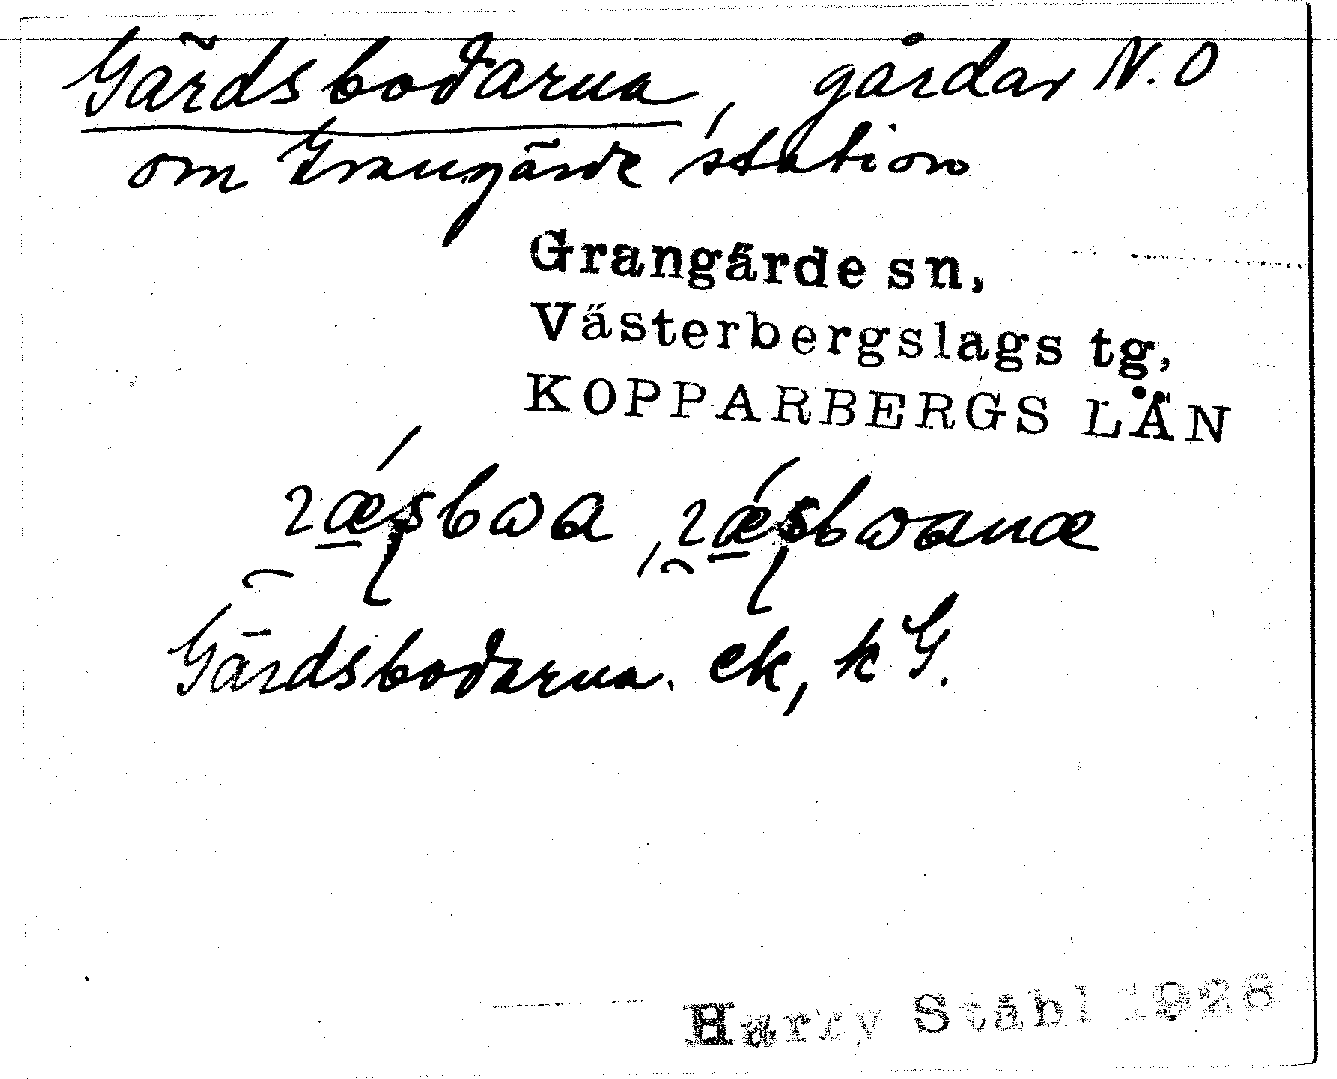 Gärdsbodarna, gårdar N.O
om Grangärde station
Grangärde sn,
Västerbergslags tg,
KOPPARBERGS LÄN
Gärdsbodarna. ek, kG.
Harry Ståhl 1928